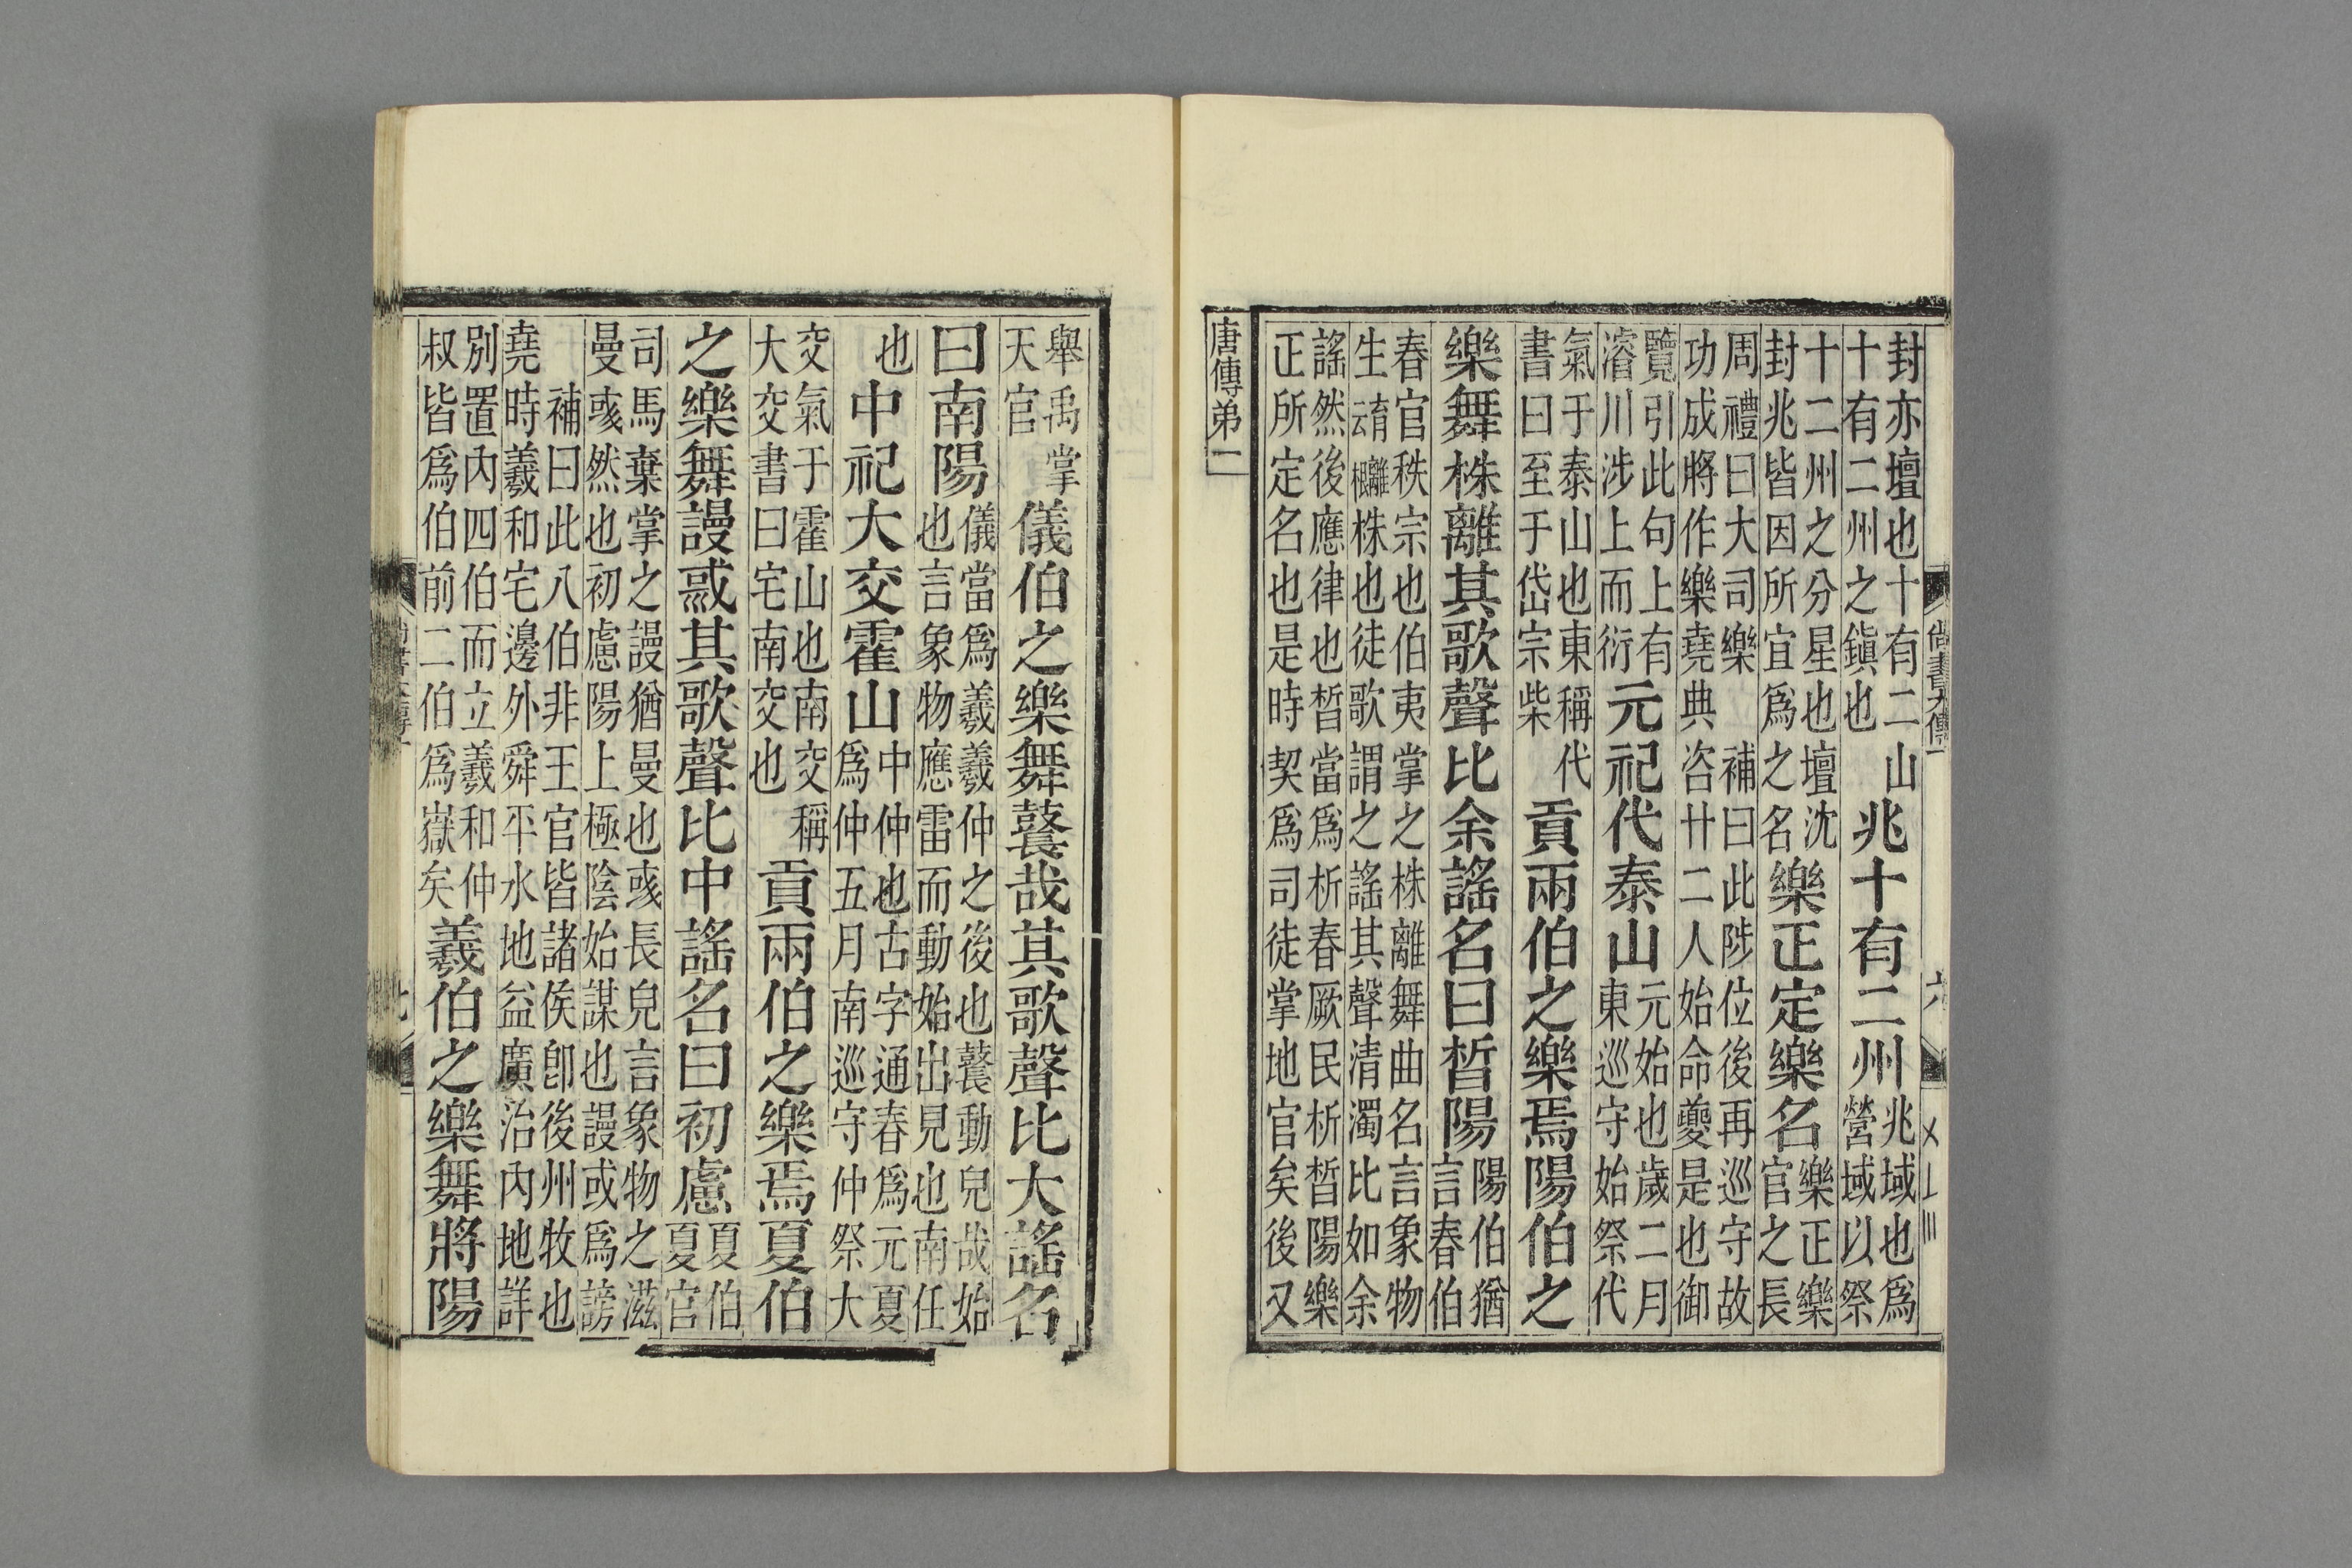 尙書大傳一
六
封亦壇也十有二山
十有二州之鎭也
兆十有二州
兆域也爲
營域以祭
十二州之分星也壇沈
封兆皆因所宜爲之名
樂正定樂名
樂正樂
官之長
周禮曰大司樂 補曰此陟位後再巡守故
功成將作樂堯典咨廿二人始命夔是也御
覽引此句上有
濬川涉上而衍
元祀代泰山
元始也歲二月
東巡守始祭代
氣于泰山也東稱代
書曰至于岱宗柴
貢兩伯之樂焉陽伯之
樂舞株離其歌聲比余謠名曰晳陽
陽伯猶
言春伯
春官秩宗也伯夷掌之株離舞曲名言象物
生育離云根株也徒歌謂之謠其聲清濁比如余
謠然後應律也晳當爲析春厥民析晳陽樂
正所定名也是時契爲司徒掌地官矣後又
唐傳弟二
舉禹掌
天官
儀伯之樂舞鼚哉其歌聲比大謠名
曰南陽
儀當爲羲羲仲之後也鼚動皃哉始
也言象物應雷而動始出見也南任
也
中祀大交霍山
中仲也古字通春爲元夏
爲仲五月南巡守仲祭大
交氣于霍山也南交稱
大交書曰宅南交也
貢兩伯之樂焉夏伯
之樂舞謾彧其歌聲比中謠名曰初慮
夏伯
夏官
司馬棄掌之謾猶曼也彧長皃言象物之滋
曼彧然也初慮陽上極陰始謀也謾或爲謗
補曰此八伯非王官皆諸侯卽後州牧也
堯時羲和宅邊外舜平水地益廣治內地詳
別置內四伯而立羲和仲
叔皆爲伯前二伯爲嶽矣
羲伯之樂舞將陽